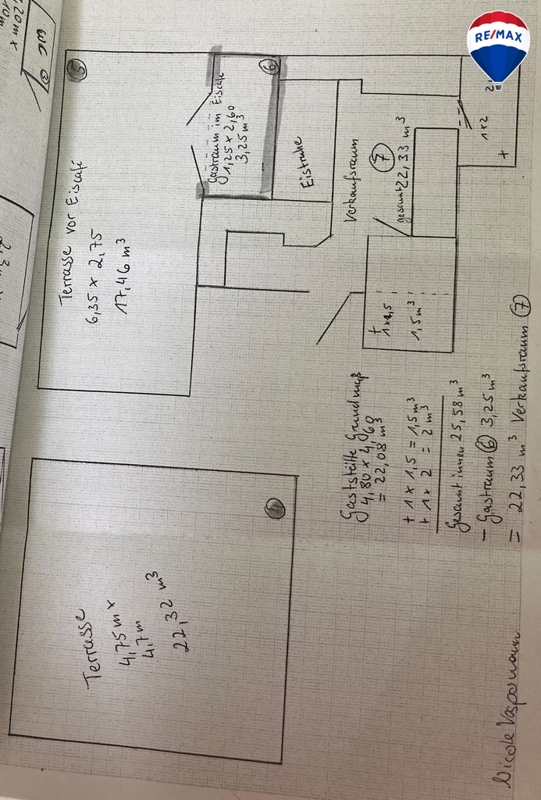 RE/MAX
5
Terrasse vor Eiscafé
6,35 x 2,75
17,46 m³
6
Gastraum im Eiscafé
1,25 x 2,60
3,25 m³
Eistruhe
Verkaufsraum
7
gesamt 22,33 m³
1x2
+
+
1x1,5
1,5 m³
Terrasse
4,75m x
4,7m
22,32 m³
Gaststätte Grundmaß
4,80 x 4,60
= 22,08 m³
+ 1 x 1,5 = 1,5 m³
+ 1 x 2 = 2 m³
Gesamt innen 25,58 m³
- Gastraum 6 3,25 m³
= 22,33 m³ Verkaufsraum 7